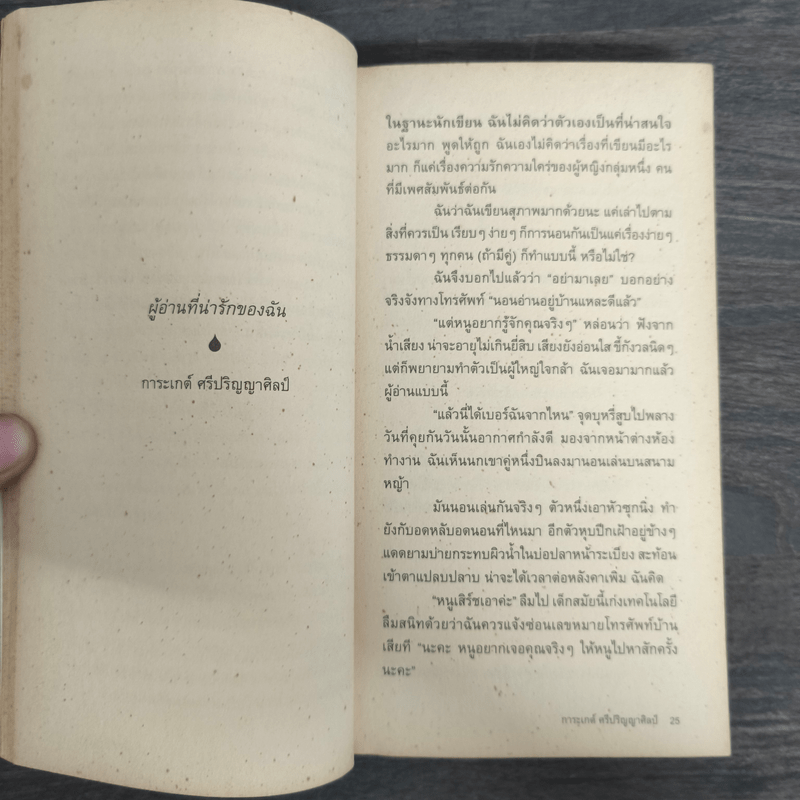 ผู้อ่านที่น่ารักของฉัน
การะเกต์ ศรีปริญญาศิลป์
ในฐานะนักเขียน ฉันไม่คิดว่าตัวเองเป็นที่น่าสนใจ
อะไรมาก พูดให้ถูก ฉันเองไม่คิดว่าเรื่องที่เขียนมีอะไร
มาก ก็แค่เรื่องความรักความใคร่ของผู้หญิงกลุ่มหนึ่ง คน
ที่มีเพศสัมพันธ์ต่อกัน
ฉันว่าฉันเขียนสุภาพมากด้วยนะ แค่เล่าไปตาม
สิ่งที่ควรเป็น เรียบๆ ง่ายๆ ก็การนอนกันเป็นแค่เรื่องง่ายๆ
ธรรมดาๆ ทุกคน (ถ้ามีคู่) ก็ทำแบบนี้ หรือไม่ใช่?
ฉันจึงบอกไปแล้วว่า “อย่ามาเลย” บอกอย่าง
จริงจังทางโทรศัพท์ “นอนอ่านอยู่บ้านแหละดีแล้ว”
“แต่หนูอยากรู้จักคุณจริงๆ” หล่อนว่า ฟังจาก
น้ำเสียง น่าจะอายุไม่เกินยี่สิบ เสียงยังอ่อนใส ขี้กังวลนิดๆ
แต่ก็พยายามทำตัวเป็นผู้ใหญ่ใจกล้า ฉันเจอมามากแล้ว
ผู้อ่านแบบนี้
“แล้วนี่ได้เบอร์ฉันจากไหน” จุดบุหรี่สูบไปพลาง
วันที่คุยกันวันนั้นอากาศกำลังดี มองจากหน้าต่างห้อง
ทำงาน ฉันเห็นนกเขาคู่หนึ่งบินลงมานอนเล่นบนสนาม
หญ้า
มันนอนเล่นกันจริงๆ ตัวหนึ่งเอาหัวซุกนิ่ง ทำ
ยังกับอดหลับอดนอนที่ไหนมา อีกตัวหุบปีกเฝ้าอยู่ข้างๆ
แดดยามบ่ายกระทบผิวน้ำในบ่อปลาหน้าระเบียง สะท้อน
เข้าตาแปลบปลาบ น่าจะได้เวลาต่อหลังคาเพิ่ม ฉันคิด
“หนูเสิร์ชเอาค่ะ” ลืมไป เด็กสมัยนี้เก่งเทคโนโลยี
ลืมสนิทด้วยว่าฉันควรแจ้งซ่อนเลขหมายโทรศัพท์บ้าน
เสียที “นะคะ หนูอยากเจอคุณจริงๆ ให้หนูไปหาสักครั้ง
นะคะ”
การะเกต์ ศรีปริญญาศิลป์ 25